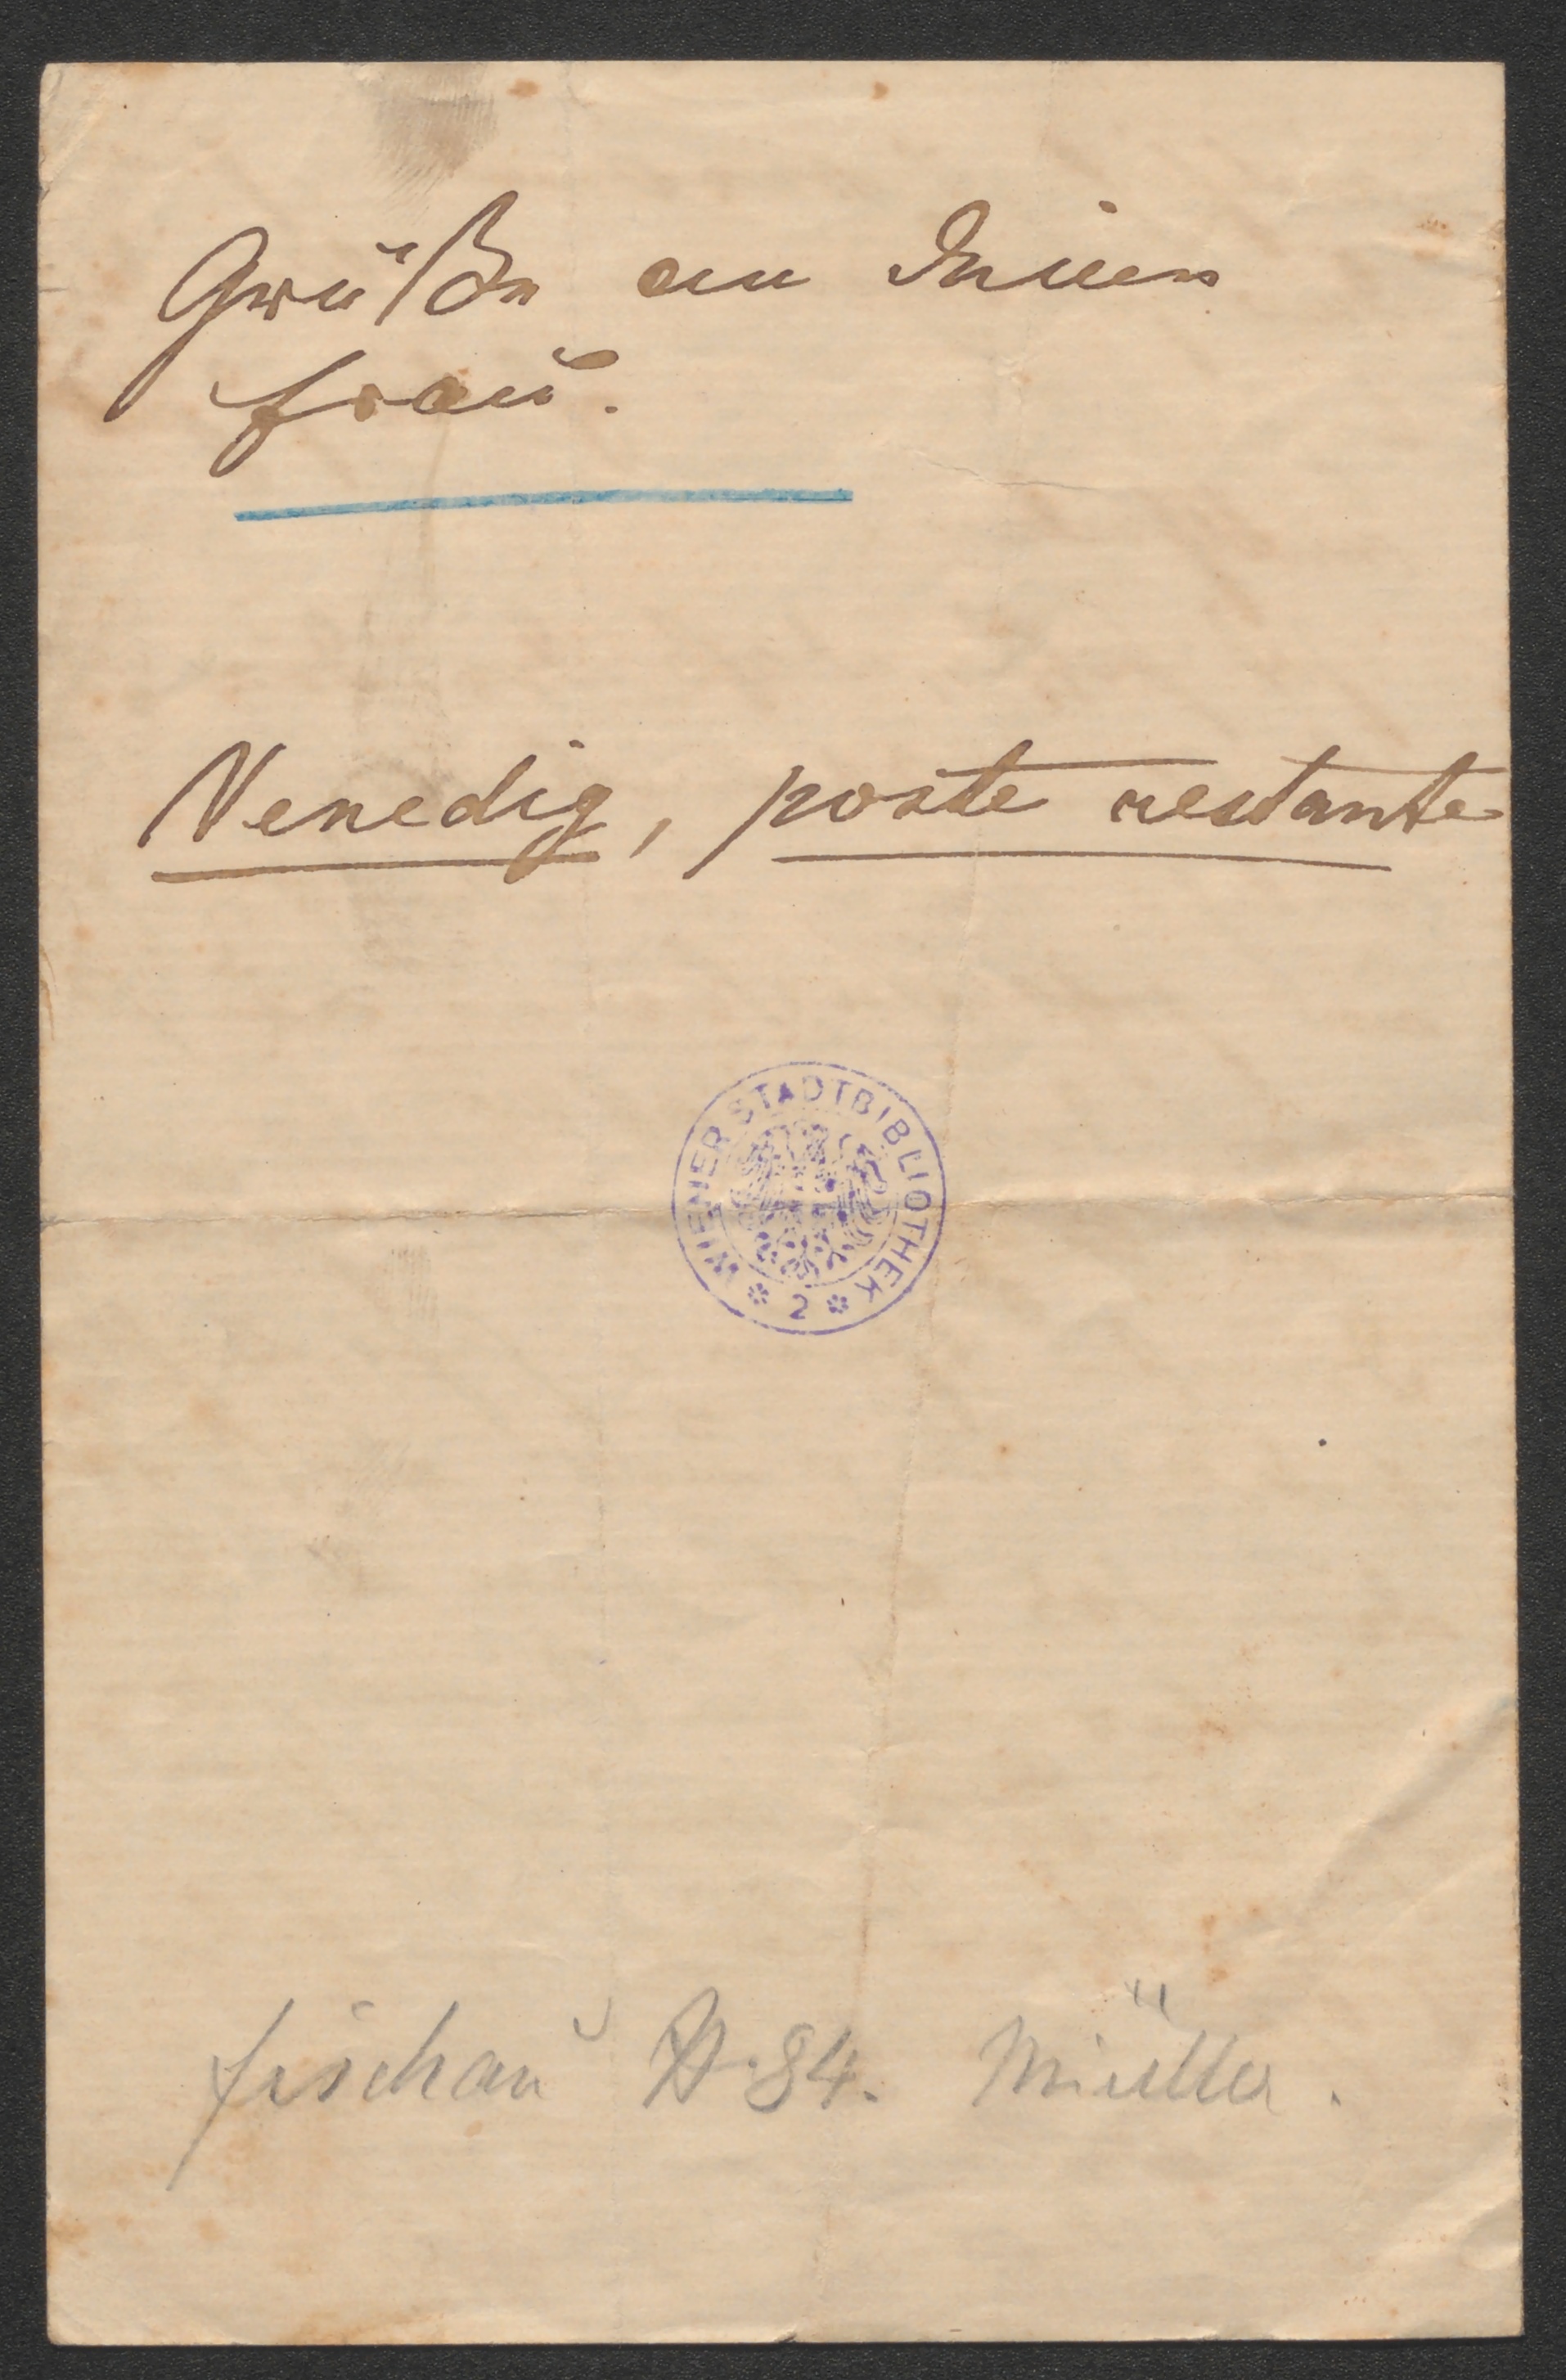 Grüße an Deine
Frau.
Venedig, poste restante
WIENER STADTBIBLIOTHEK
* 2 *
Fischau 84. Müller.